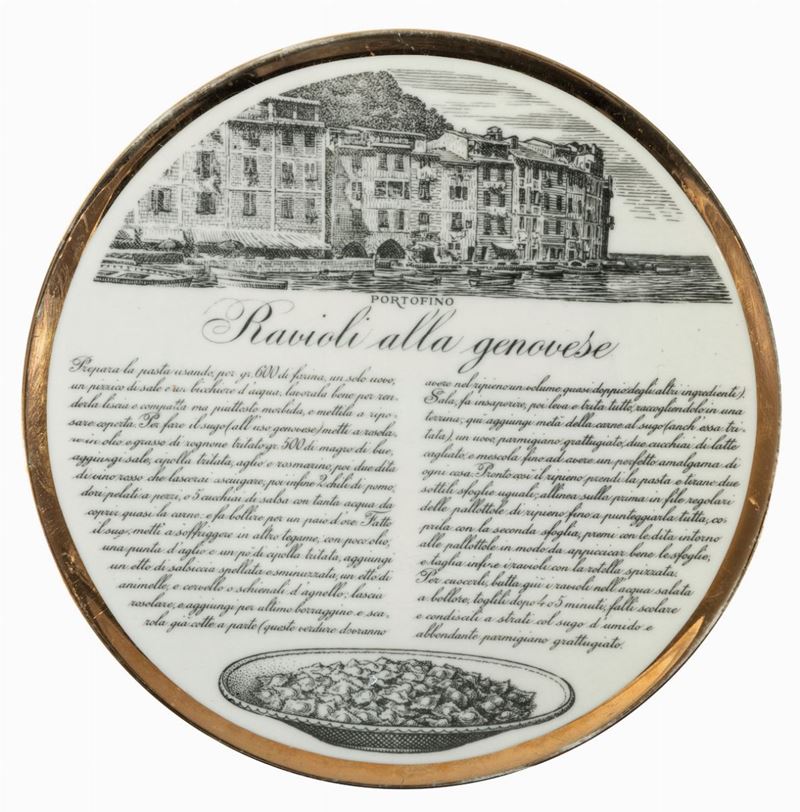 PORTOFINO
Ravioli alla genovese
Prepara la pasta usando, per gr. 600 di farina, un solo uovo,
un pizzico di sale e un bicchiere d'acqua, lavorala bene per ren-
derla liscia e compatta ma piuttosto morbida, e mettila a ripo-
sare coperta. Per fare il sugo (all'uso genovese) metti a rosola-
re in olio e grasso di rognone tritato gr. 500 di magro di bue,
aggiungi sale, cipolla tritata, aglio e rosmarino, poi due dita
di vino rosso che lascerai asciugare, poi infine 2 chili di pomo-
dori pelati a pezzi, o 5 cucchiai di salsa con tanta acqua da
coprir quasi la carne: e fa bollire per un paio d'ore. Fatto
il sugo, metti a soffriggere in altro tegame, con poco olio,
una punta d'aglio e un pò di cipolla tritata, aggiungi
un etto di salsiccia spellata e sminuzzata, un etto di
animelle, e cervello o schienali d'agnello; lascia
rosolare, e aggiungi per ultimo borraggine e sca-
rola già cotte a parte (queste verdure dovranno
avere nel ripieno un volume quasi doppio degli altri ingredienti).
Sala, fa insaporire, poi leva e trita tutto, raccogliendolo in una
terrina, qui aggiungi metà della carne al sugo (anch'essa tri-
tata), un uovo, parmigiano grattugiato, due cucchiai di latte
cagliato, e mescola fino ad avere un perfetto amalgama di
ogni cosa. Pronto così il ripieno, prendi la pasta e tirane due
sottili sfoglie uguali; allinea sulla prima in file regolari
delle pallottole di ripieno fino a punteggiarla tutta, co-
prila con la seconda sfoglia, premi con le dita intorno
alle pallottole in modo da appiccicar bene le sfoglie,
e taglia infine i ravioli con la rotella spizzata.
Per cuocerli, butta giù i ravioli nell'acqua salata
a bollore, toglili dopo 4 o 5 minuti, falli scolare
e condiscili a strati col sugo d'umido e
abbondante parmigiano grattugiato.